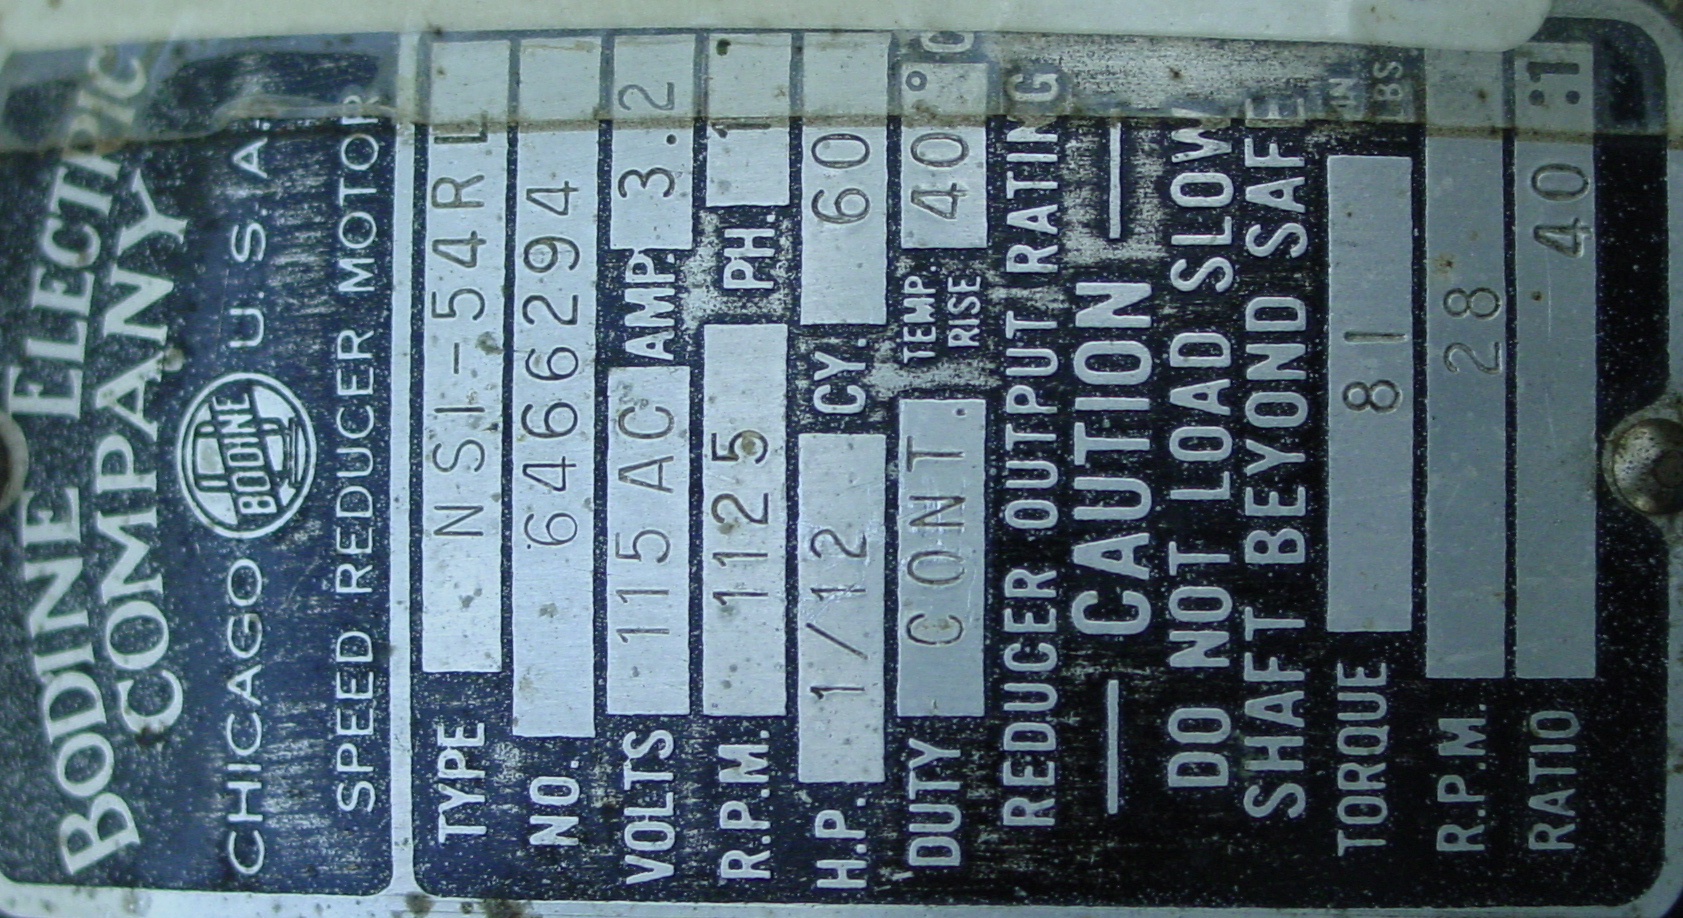 BODINE ELECTRIC
COMPANY
CHICAGO BODINE U.S.A.
SPEED REDUCER MOTOR
TYPE NSI-54RL
NO. 6466294
VOLTS 115 AC AMP. 3.2
R.P.M. 1125 PH. 1
H.P. 1/12 CY. 60
DUTY CONT. TEMP. RISE 40 °C
REDUCER OUTPUT RATING
— CAUTION —
DO NOT LOAD SLOW
SHAFT BEYOND SAFE
TORQUE 81 IN LBS
R.P.M. 28
RATIO 40 :1